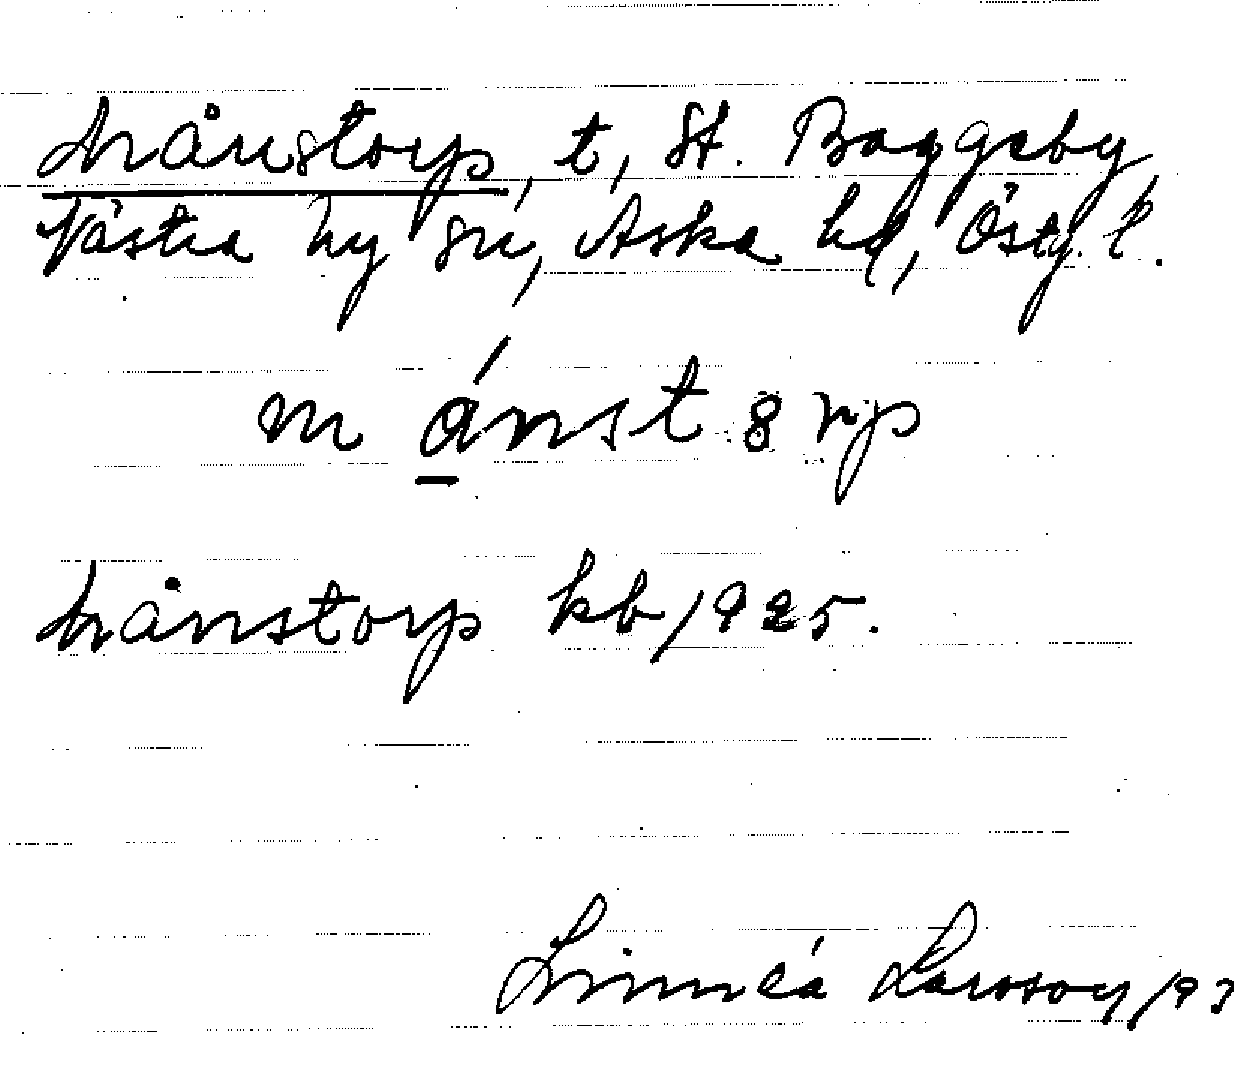 Månstorp, t, St. Baggeby
Västra Ny sn, Aska hd, Östg. l.
m ánst 8 rp
Månstorp kb 1925.
Linnéa Larsson 193